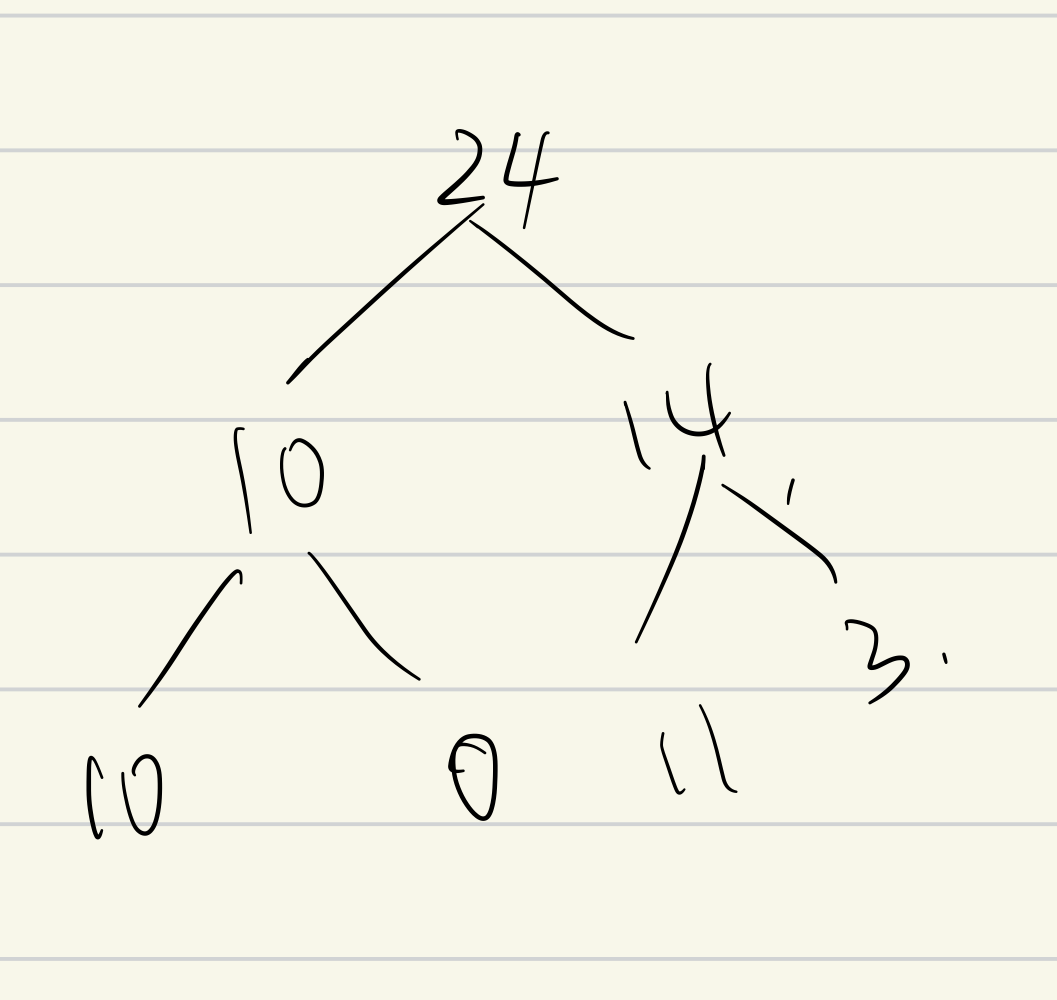 24
10 14
10 0 11 3